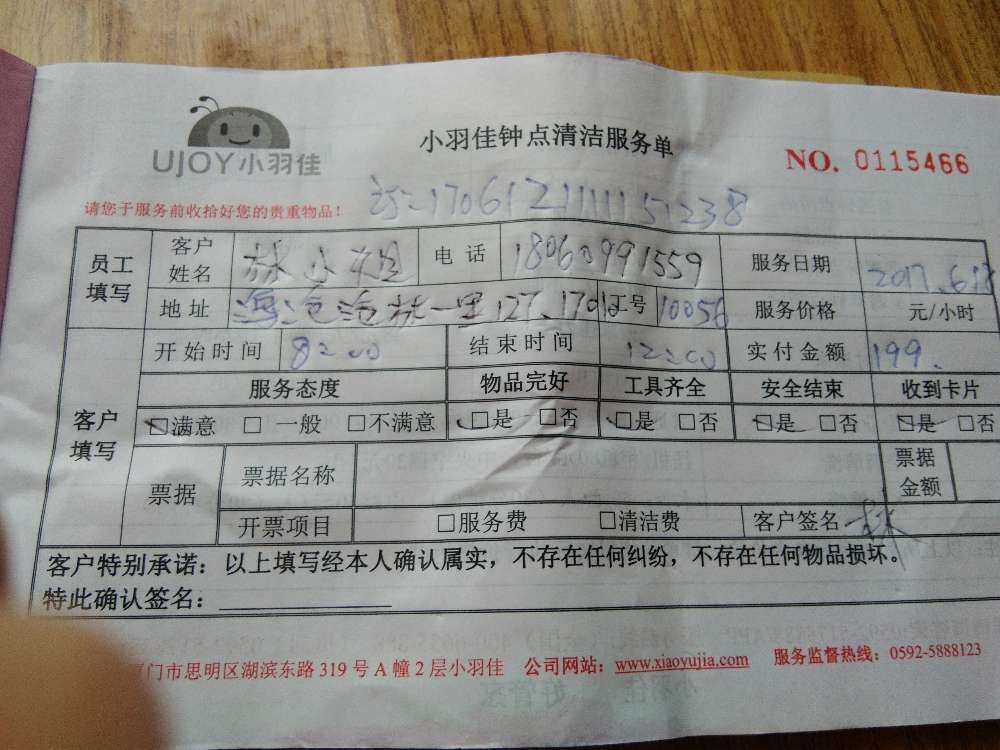 UJOY小羽佳
小羽佳钟点清洁服务单
NO. 0115466
请您于服务前收拾好您的贵重物品！
1706121111151238
员工填写 客户姓名 林小姐 电话 18060991559 服务日期 2017.6.13
地址 海沧沧林一里127.1701 工号 10056 服务价格 元/小时
客户填写 开始时间 8:00 结束时间 12:00 实付金额 199.
服务态度 物品完好 工具齐全 安全结束 收到卡片
☑满意 □一般 □不满意 ☑是 □否 ☑是 □否 ☑是 □否 ☑是 □否
票据 票据名称 票据金额
开票项目 □服务费 □清洁费 客户签名 林
客户特别承诺：以上填写经本人确认属实，不存在任何纠纷，不存在任何物品损坏。
特此确认签名：
门市思明区湖滨东路 319 号 A 幢 2 层小羽佳 公司网站：www.xiaoyujia.com 服务监督热线：0592-5888123